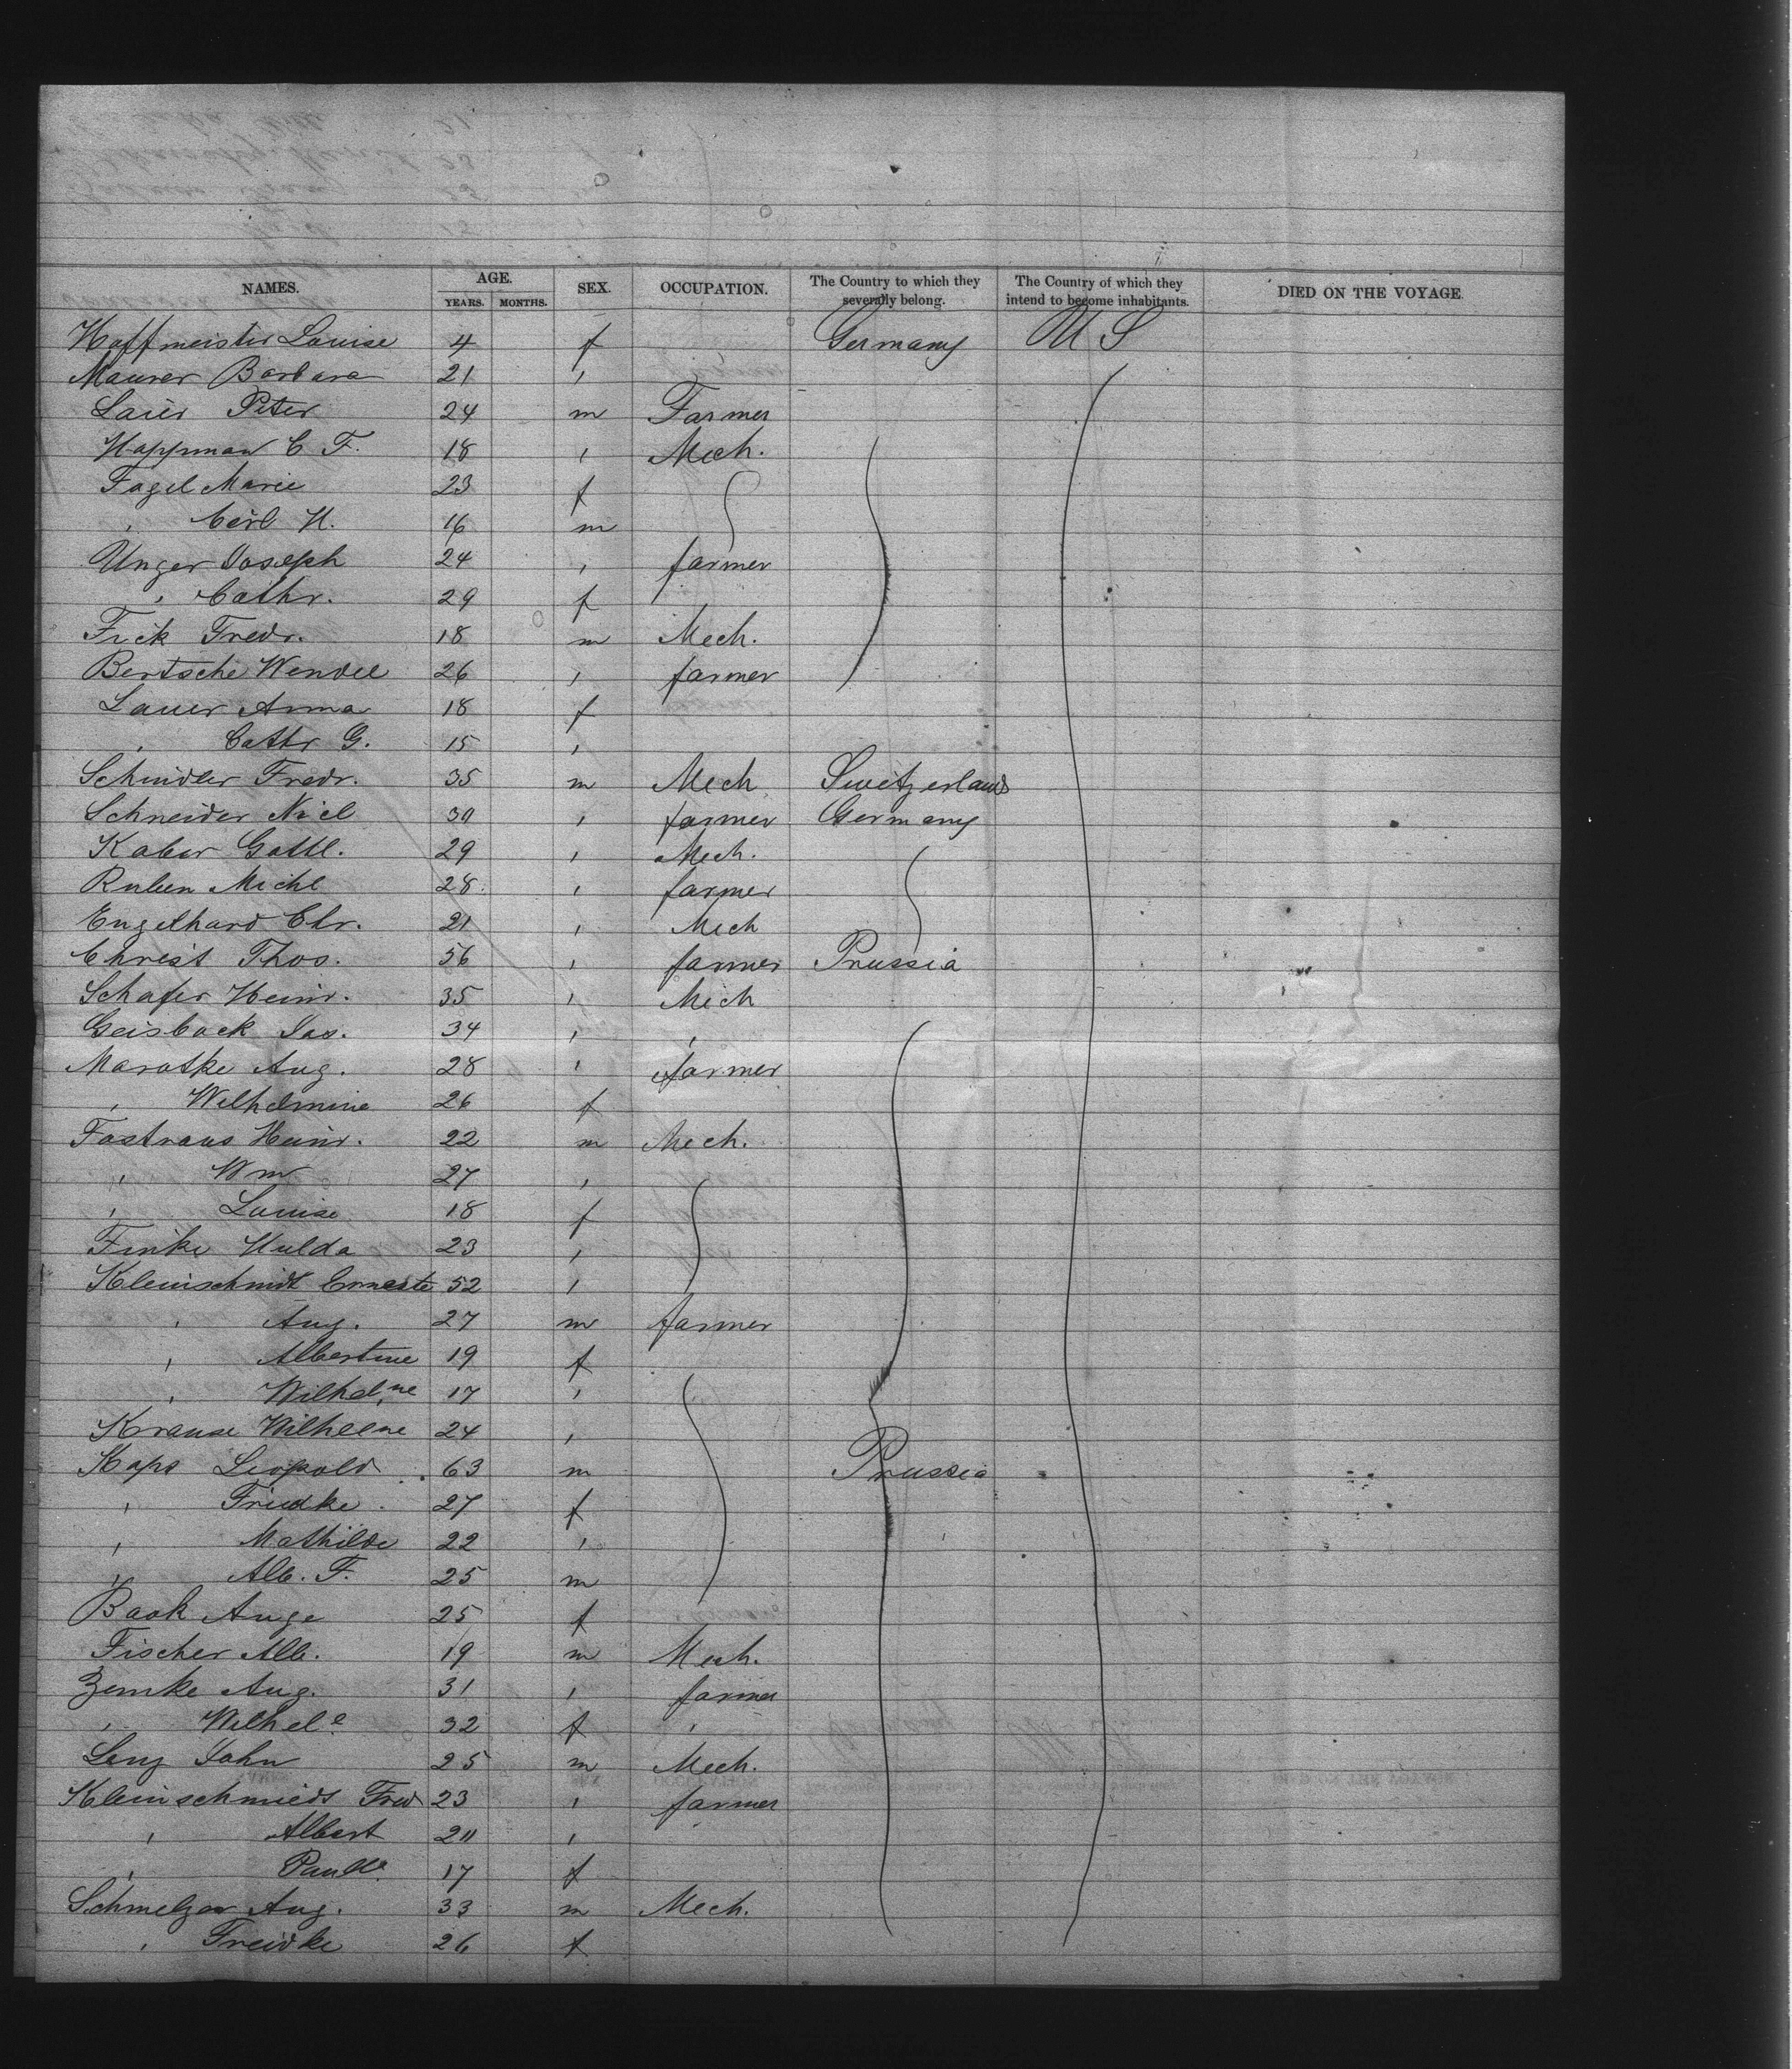 NAMES. AGE. YEARS. MONTHS. SEX. OCCUPATION. The Country to which they severally belong. The Country of which they intend to become inhabitants. DIED ON THE VOYAGE
Hoffmeister Louise 4 f Germany U S
Maurer Barbara 21 "
Lauer Peter 24 m Farmer
Happman C F. 18 " Mech.
Fagel Marie 23 f
" Carl H. 16 m
Unger Joseph 24 " farmer
" Cathr. 29 f
Fick Fredr. 18 m Mech.
Bertsche Wendel 26 " farmer
Lauer Anna 18 f
" Cathr G. 15 "
Schindler Fredr. 35 m Mech Switzerland
Schneider Nicl 39 " farmer Germany
Kaber Gottl. 29 " Mech.
Ruben Michl 28 " farmer
Engelhard Chr. 21 " Mech
Christ Thos. 56 " farmer Prussia
Schafer Heinr. 35 " Mech
Geisback Jos. 34 " "
Maratke Aug. 28 " farmer
" Wilhelmine 26 f
Fastraus Heinr. 22 m Mech.
" Wm 27 "
" Louise 18 f
Finke Hulda 23 "
Kleinschmidt Erneste 52 "
" Aug. 27 m farmer
" Albertine 19 f
" Wilhelne 17 "
Krause Wilhelne 24 "
Kaps Leopold 63 m Prussia
" Friedke 27 f
" Mathilde 22 "
" Alb. F. 25 m
Baok Auge 25 f
Fischer Alb. 19 m Mech.
Zemke Aug. 31 " farmer
" Wilhele 32 f "
Lenz John 25 m Mech.
Kleinschmidt Fred 23 " farmer
" Albert 20 "
" Paule 17 f
Schmelzer Aug. 33 m Mech.
" Freidke 26 f